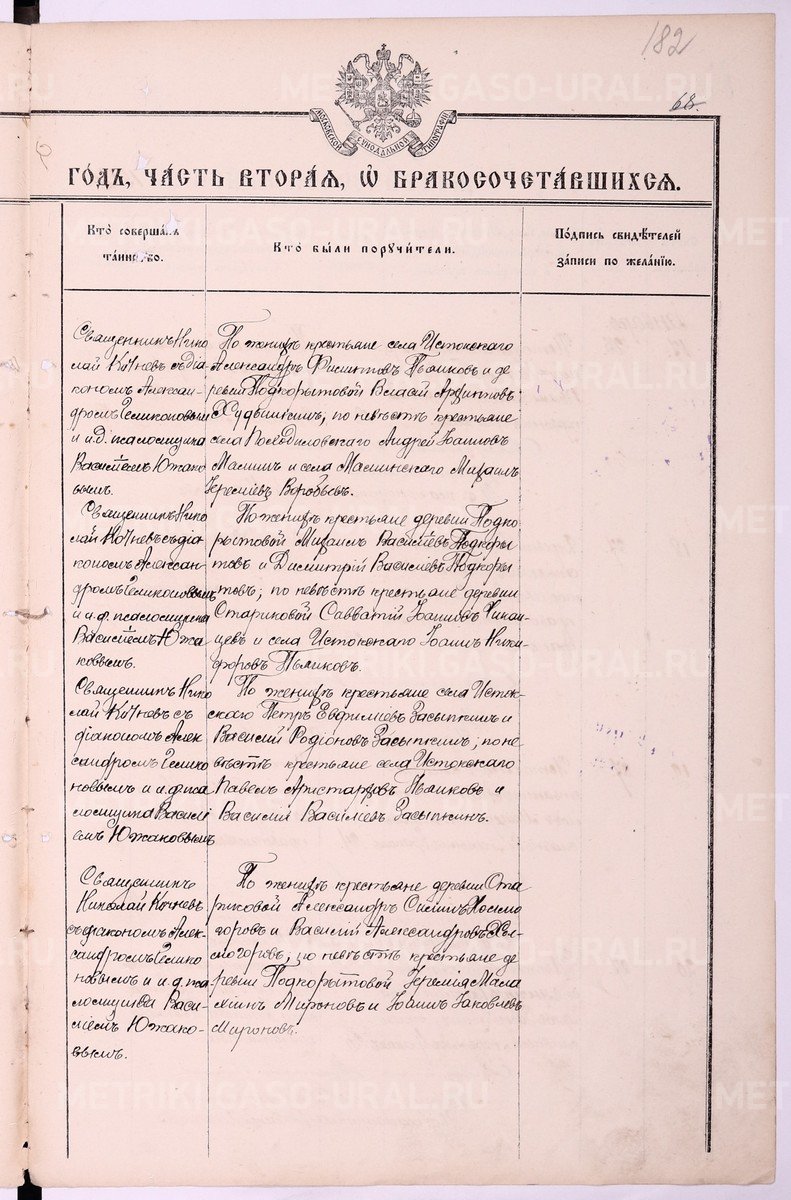 182
68.
МОСКОВСКОЙ СѴНОДАЛЬНОЙ ТИПОГРАФІИ
ГО́ДЪ, ЧА́СТЬ ВТОРА́Я, Ѽ БРАКОСОЧЕТА́ВШИХСЯ.
Кто̀ соверша́лъ
та́инство.
Кто̀ бы́ли поручи́тели.
По́дпись свидѣ́телей
за́писи по жела́нїю.
Священникъ Нико
лай Кочневъ съ діа
кономъ Алексан
дромъ Геликоновымъ
и и.д. псаломщика
Василіемъ Южако
вымъ.
По женихѣ крестьяне села Истокскаго
Александръ Пьянковъ и де
ревни Подкорытовой Власій Архиповъ
по невѣстѣ крестьяне
села Андрей Іоанновъ
Малинъ и села Маминскаго Михаилъ
Іереміевъ Воробьевъ.
Священникъ Нико
лай Кочневъ съ діа
кономъ Алексан
дромъ Геликоновымъ
и и.д. псаломщика
Василіемъ Южа
ковымъ.
По женихѣ крестьяне деревни Подко
рытовой Михаилъ Василіевъ Подкоры
товъ и Димитрій Василіевъ Подкоры
товъ; по невѣстѣ крестьяне деревни
Стариковой Савватій Іоанновъ
и села Истокскаго Іоаннъ Ники
форовъ Пьянковъ.
Священникъ Нико
лай Кочневъ съ
діакономъ Алек
сандромъ Гелико
новымъ и и.д. пса
ломщика Василі
емъ Южаковымъ
По женихѣ крестьяне села Исток
скаго Петръ Евфиміевъ Засыпкинъ и
Василій Родіоновъ Засыпкинъ; по не
вѣстѣ крестьяне села Истокскаго
Павелъ Аристарховъ Пьянковъ и
Василій Василіевъ Засыпкинъ.
Священникъ
Николай Кочневъ
съ діакономъ Алек-
сандромъ Гелико
новымъ и и.д. пса
ломщика Васи-
ліемъ Южако-
вымъ.
По женихѣ крестьяне деревни Ста
риковой Александръ Холмо
горовъ и Василій Александровъ Хол-
могоровъ, по невѣстѣ крестьяне де
ревни Подкорытовой Іеремія Мала
хіинъ Мироновъ и Іоаннъ Іаковлевъ
Мироновъ.
METRIKI.GASO-URAL.RU